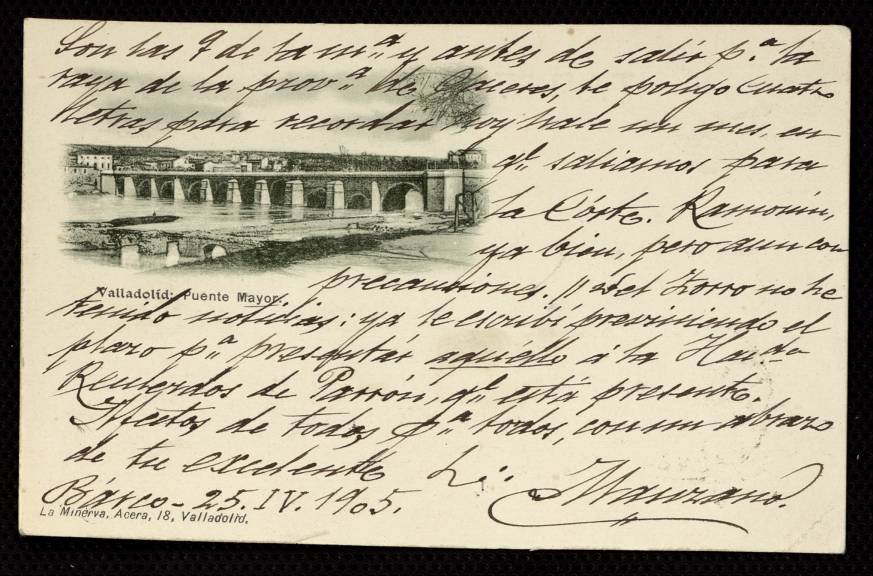 Son las 9 de la mñª y antes de salir pª la
raya de la provª de Cáceres, te pongo cuatro
letras para recordar hoy hace un mes, en
qᵉ saliamos para
la Corte. Ramonín,
ya bien, pero aun con
precauciones. // del Zorro no he
Valladolid: Puente Mayor.
tenido noticias: ya le escribí previniendo el
plazo pª presentár aquéllo á la Hacdª
Recuerdos de Parrón, qᵉ está presente.
Afectos de todos pª todos, con un abrazo
de tu
Manzano.
Barco - 25. IV. 1905.
La Minerva, Acera, 18, Valladolid.